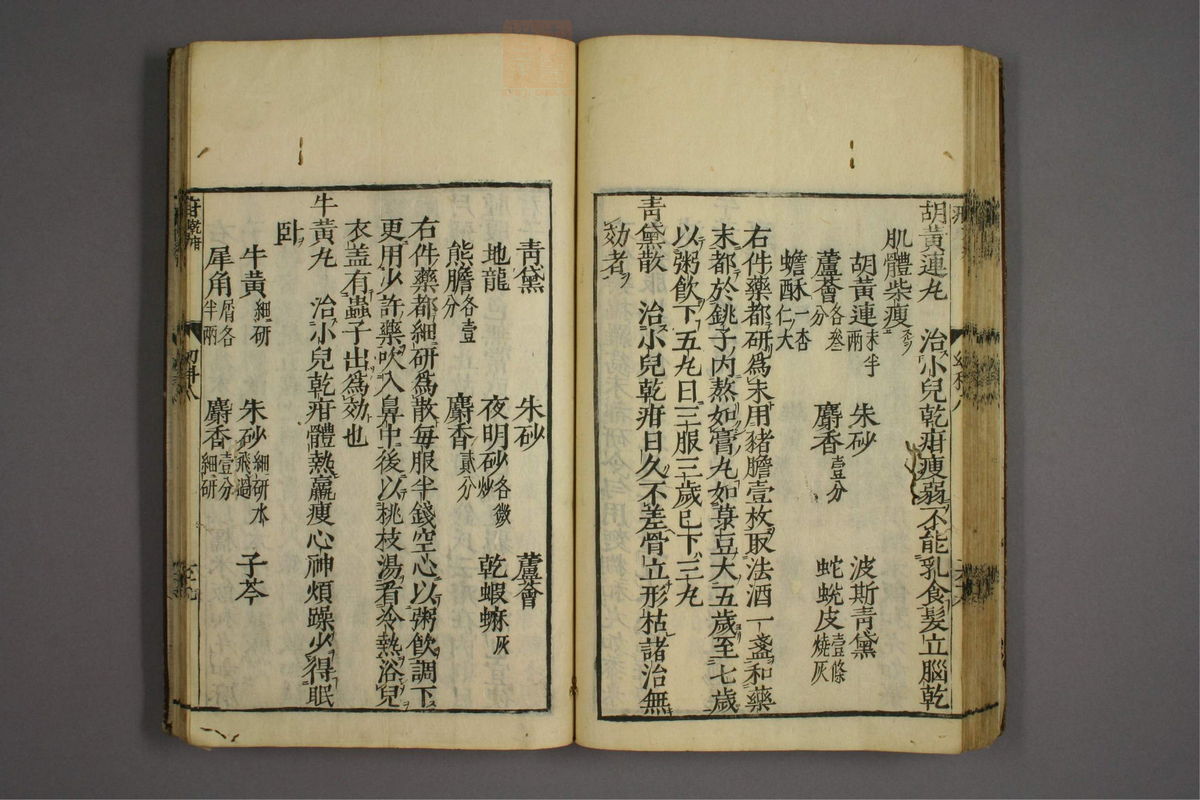 胡黃連丸　治小兒乾疳瘦弱不能乳食髮立腦乾
肌體柴瘦
胡黃連末半兩　朱砂　波斯青黛
蘆薈各叁分　麝香壹分　蛇蛻皮壹條燒灰
蟾酥一杏仁大
右件藥都研爲末用猪膽壹枚取法酒一盞和藥
末都於銚子內熬如膏丸如菉豆大五歲至七歲
以粥飮下五丸日三服三歲已下三丸
青黛散　治小兒乾疳日久不差骨立形枯諸治無
効者
青黛　朱砂　蘆薈
地龍　夜明砂各微炒　乾蝦蟆灰
熊膽各壹分　麝香貳分
右件藥都細研爲散每服半錢空心以粥飮調下
更用少許藥吹入鼻中後以桃枝湯看冷熱浴兒
衣盖有蟲子出爲効也
牛黃丸　治小兒乾疳體熱羸瘦心神煩躁少得眠
臥
牛黃細研　朱砂細研水飛過　子芩
犀角屑各半兩　麝香壹分細研